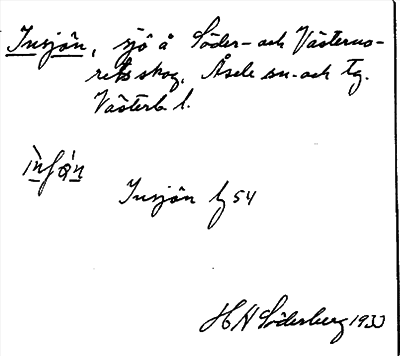 Insjön, sjö å Söder- och Västerno-
rets skog, Åsele sn. och tg.
Västerb. l.
Insjön
54
H N Söderberg 1933